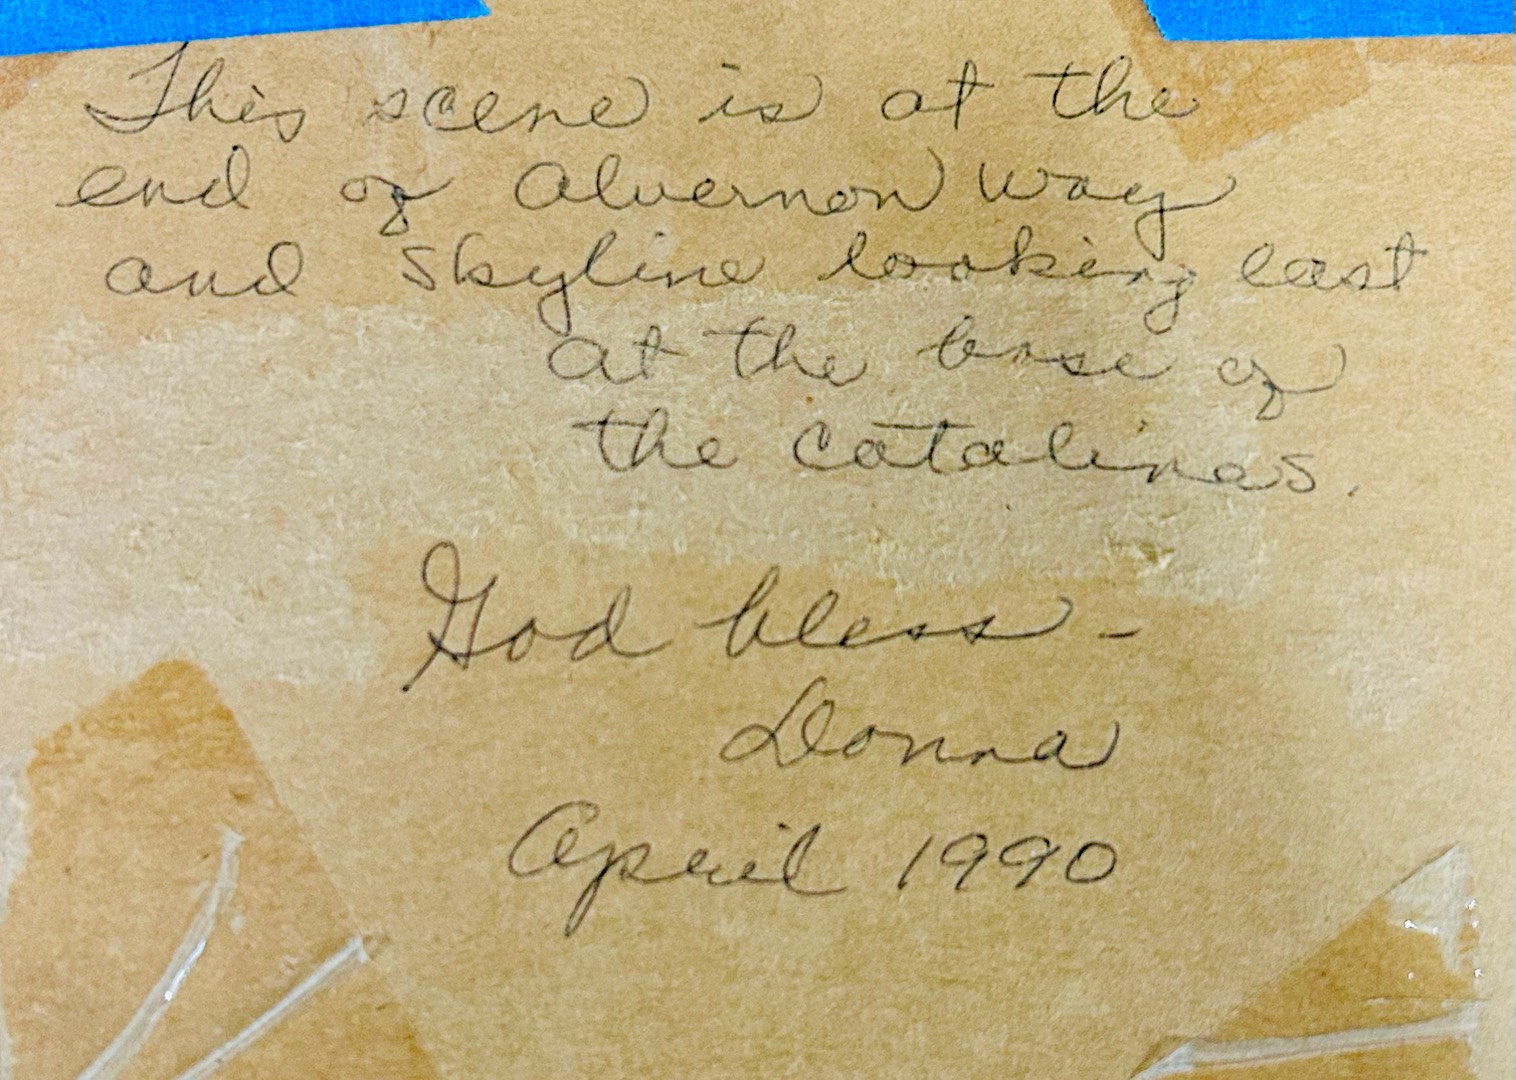 This scene is at the
end of Alvernon Way
and Skyline looking east
at the base of
the Catalinas.
God bless -
Donna
April 1990